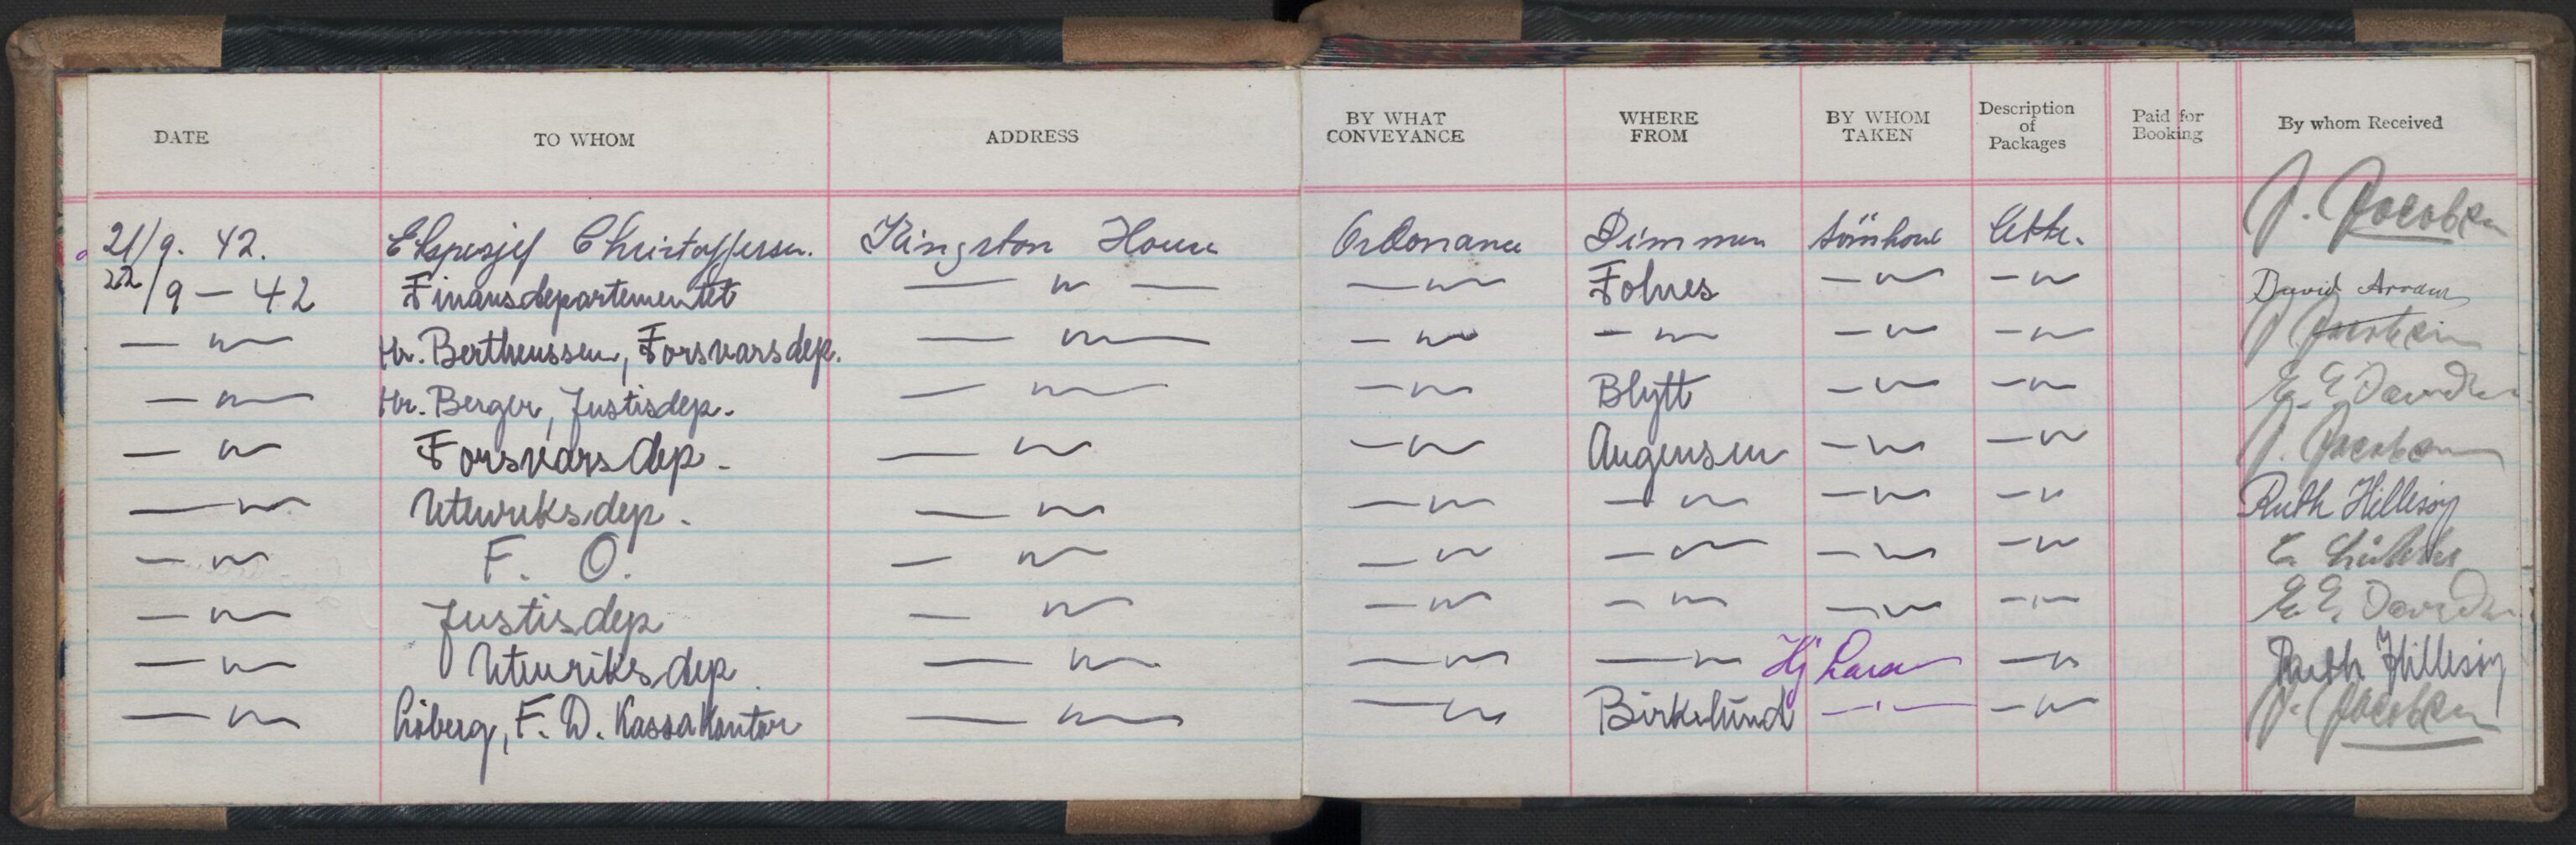 DATE TO WHOM ADDRESS BY WHAT CONVEYANCE WHERE FROM BY WHOM TAKEN Description of Packages Paid for Booking By whom Received
21/9. 42. Christoffersen. Kingston House Ordonance Dimmen J. Jacobsen
22/9 - 42 Finansdepartementet — " — — " — Folnes — " — — " — David
— " — Hr. Bertheussen, Forsvarsdep. — " — — " — — " — — " — — " — J. Jacobsen
— " — Hr. Berger, Justisdep. — " — — " — Blytt — " — — " — E. E. Davidsen
— " — Forsvarsdep. — " — — " — Augensen — " — — " — J. Jacobsen
— " — Utenriksdep. — " — — " — — " — — " — — " — Ruth Hillesøy
— " — F. O. — " — — " — — " — — " — — " —
— " — Justisdep — " — — " — — " — — " — — " — E. E. Davidsen
— " — Utenriksdep. — " — — " — — " — Hj Larsen — " — Ruth Hillesøy
— " — F. D. Kassakontor — " — — " — Birkelund — " — — " — J. Jacobsen